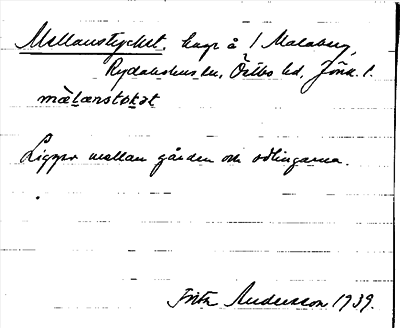 Mellanstycket, hage å 1 Malaberg,
Rydaholms sn, Östbo hd, Jönk. l.
mälanstokat
Ligger mellan gården och odlingarna.
Fritz Andersson 1939.